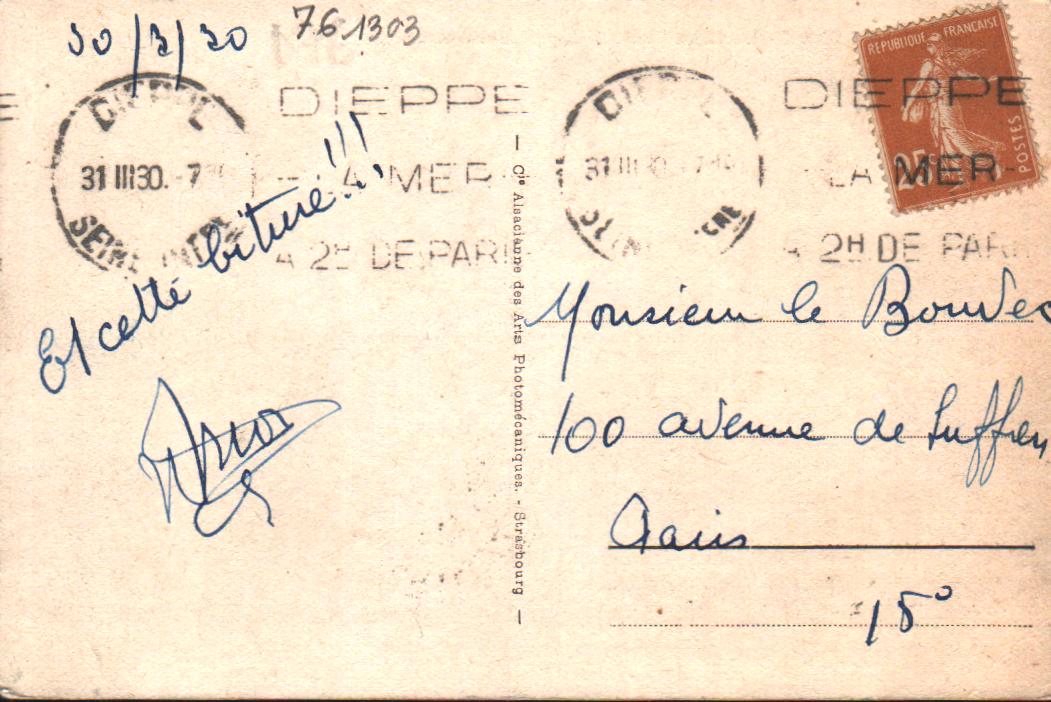 30/3/30
761303
DIEPPE
31 III 30. - 7
SEINE INFRE
DIEPPE
LA MER
A 2H DE PARIS
DIEPPE
31 III 30. 7
DIEPPE
LA MER
A 2H DE PARIS
REPUBLIQUE FRANÇAISE
POSTES
25c
Et cette biture!!!
Cie Alsacienne des Arts Photomécaniques. - Strasbourg
Monsieur le Bourdec
100 avenue de Suffren
Paris
15°